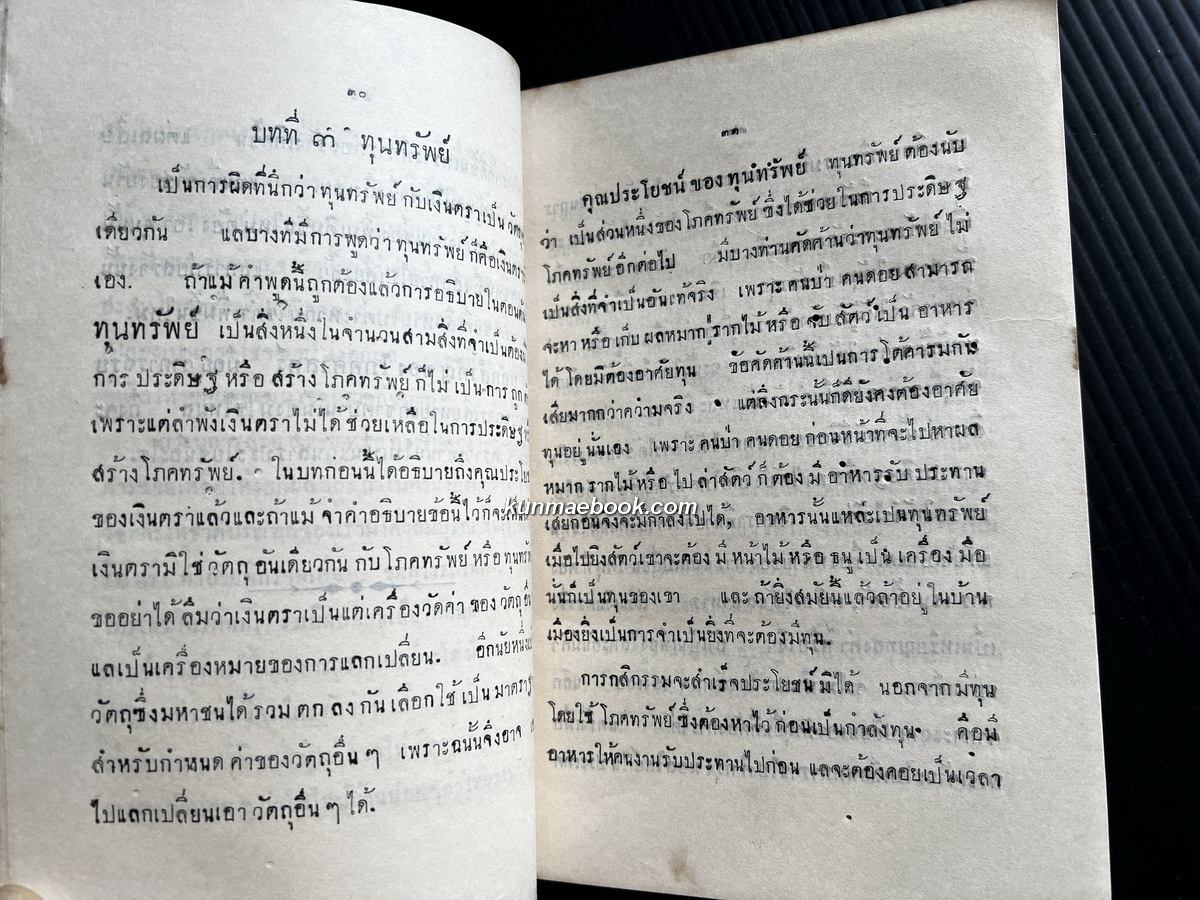 ๓๐
บทที่ ๓ ทุนทรัพย์
เป็นการผิดที่นึกว่า ทุนทรัพย์ กับเงินตราเป็น วัตถุ
เดียวกัน แลบางทีมีการพูดว่า ทุนทรัพย์ ก็คือเงินตรา
เอง. ถ้าแม้ คำพูดนี้ถูกต้องแล้วการอธิบายในตอนต้น
ทุนทรัพย์ เป็นสิ่งหนึ่งในจำนวนสามสิ่งที่จำเป็นต้อง
การ ประดิษฐ หรือ สร้าง โภคทรัพย์ ก็ไม่ เป็นการ ถูก
เพราะแต่ลำพังเงินตราไม่ได้ ช่วยเหลือในการประดิษฐ
สร้างโภคทรัพย์. ในบทก่อนนี้ได้อธิบายถึงคุณประโย
ของเงินตราแล้วและถ้าแม้ จำคำอธิบายข้อนี้ไว้ก็จะเห็น
เงินตรามิใช่ วัตถุ อันเดียวกัน กับ โภคทรัพย์ หรือ ทุนทรัพ
ขออย่าได้ ลืมว่าเงินตราเป็นแต่เครื่องวัดค่า ของ วัตถุ
แลเป็นเครื่องหมายของการแลกเปลี่ยน. อีกนัยหนึ่ง
วัตถุซึ่งมหาชนได้ รวม ตก ลง กัน เลือกใช้ เป็น มาตรา
สำหรับกำหนด ค่าของวัตถุอื่น ๆ เพราะฉนั้นจึ่งอาจ
ไปแลกเปลี่ยนเอา วัตถุอื่น ๆ ได้.
๓๑
คุณประโยชน์ ของ ทุนทรัพย์ ทุนทรัพย์ ต้องนับ
ว่า เป็นส่วนหนึ่งของโภคทรัพย์ ซึ่งได้ช่วยในการ ประดิษฐ
โภคทรัพย์ อีกต่อไป มีบางท่านคัดค้านว่าทุนทรัพย์ ไม่
เป็นสิ่งที่จำเป็นอันแท้จริง เพราะ คนป่า คนดอย สามารถ
จะหา หรือ เก็บ ผลหมาก รากไม้ หรือ จับ สัตว์ เป็น อาหาร
ได้ โดยมิต้องอาศัยทุน ข้อคัดค้านนี้เป็นการ โต้คารมกัน
เสียมากกว่าความจริง แต่ถึงกระนั้นก็ดียังคงต้องอาศัย
ทุนอยู่ นั่นเอง เพราะ คนป่า คนดอย ก่อนหน้าที่จะไปหาผล
หมาก รากไม้ หรือ ไป ล่าสัตว์ ก็ ต้อง มี อาหารรับ ประทาน
เสียก่อนจึงจะมีกำลังไปได้, อาหารนั้นแหละเป็นทุนทรัพย์
kunmaebook.com
เมื่อไปยิงสัตว์เขาจะต้อง มี หน้าไม้ หรือ ธนู เป็น เครื่อง มือ
นั่นก็เป็นทุนของเขา และ ถ้ายิ่งสมัยนี้แล้วถ้าอยู่ ในบ้าน
เมืองยิ่งเป็นการจำเป็นยิ่งที่จะต้องมีทุน.
การกสิกรรมจะสำเร็จประโยชน์ มิได้ นอกจากมีทุน
โดยใช้ โภคทรัพย์ ซึ่งต้องหาไว้ ก่อนเป็นกำลังทุน คือมี
อาหารให้คนงานรับประทานไปก่อน แลจะต้องคอยเป็นเวลา